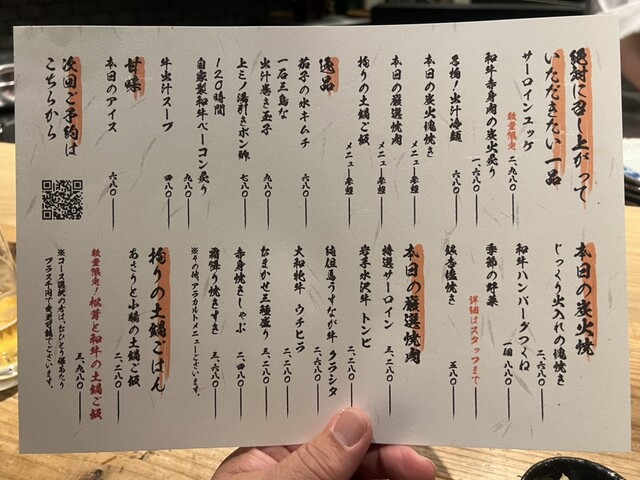 絶対に召し上がって
いただきたい一品
サーロインユッケ
数量限定 二、九八〇
和牛赤身肉の炭火炙り 一、六八〇
名物！出汁冷麺 六八〇
本日の炭火塊焼き メニュー参照
本日の厳選焼肉 メニュー参照
拘りの土鍋ご飯 メニュー参照
逸品
茄子の水キムチ 六八〇
一石三鳥な
出汁巻き玉子 九八〇
上ミノ湯引きポン酢 七八〇
120時間
自家製和牛ベーコン炙り 九八〇
牛出汁スープ 四八〇
甘味
本日のアイス 六八〇
次回ご予約は
こちらから
本日の炭火焼
じっくり火入れの塊焼き 二、六八〇
和牛ハンバーグつくね 一個 八八〇
季節の野菜
詳細はスタッフまで
銀杏塩焼き 五八〇
本日の厳選焼肉
特選サーロイン 三、二八〇
岩手水沢牛 トンビ 二、二八〇
純但馬うすなが牛 クラシタ 二、六八〇
大和牝牛 ウチヒラ 二、二八〇
なまかせ三種盛り 三、二八〇
赤身焼きしゃぶ 二、四八〇
霜降り焼きすき 三、六八〇
※その他、アラカルトメニューございます。
拘りの土鍋ごはん
あさりと小柱の土鍋ご飯 二、二八〇
数量限定！松茸と和牛の土鍋ご飯 三、九八〇
※コース選択の方は、おひとり様あたり
プラス千円で変更可能でございます。